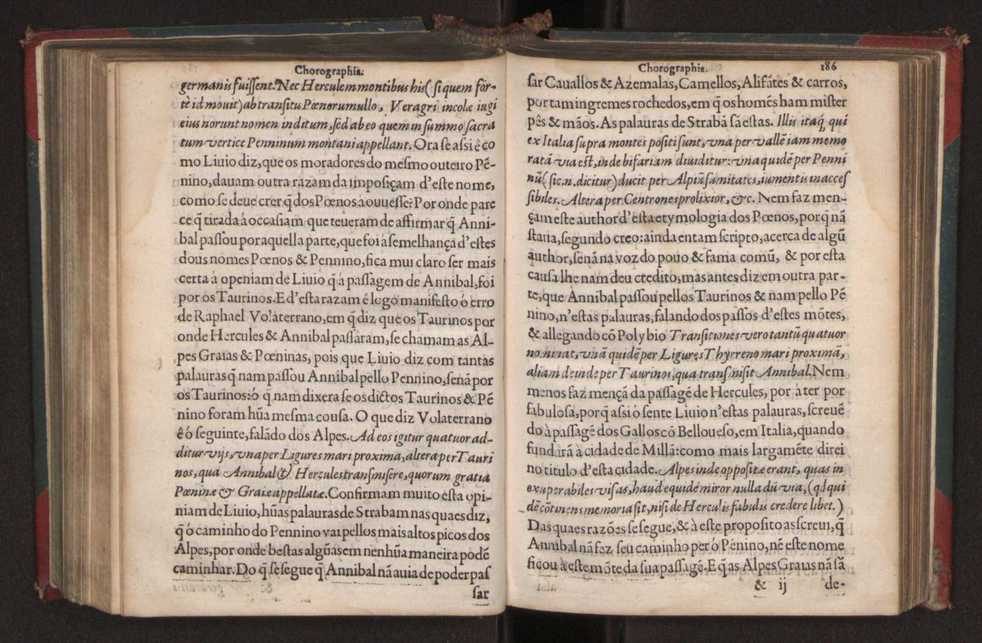 Chorographia.
germanis fuissent. Nec Herculem montibus his (si quem for-
te id mouit) ab transitu Pœnorum ullo, Veragri incolæ iugi
eius norunt nomen inditum, sed ab eo quem in summo sacra
tum vertice Penninum montani appellant. Ora se assi è co
mo Liuio diz, que os moradores do mesmo outeiro Pẽ-
nino, dauam outra razam da imposiçam d'este nome,
como se deue crer q̃ dos Pœnos à ouuesse? Por onde pare
ce q̃ tirada à occasiam que teueram de affirmar q̃ Anni-
bal passou por aquella parte, que foi à semelhançã d'estes
dous nomes Pœnos & Pennino, fica mui claro ser mais
certa à openiam de Liuio q̃ á passagem de Annibal, foi
por os Taurinos. E d'esta razam é logo manifesto ò erro
de Raphael Volaterrano, em q̃ diz que os Taurinos por
onde Hercules & Annibal passaram, se chamam as Al-
pes Graias & Pœninas, pois que Liuio diz com tantas
palauras q̃ nam passou Annibal pello Pennino, senã por
os Taurinos: ò q̃ nam dixera se os dictos Taurinos & Pẽ
nino foram hũa mesma cousa. O que diz Volaterrano
é ò seguinte, falãdo dos Alpes. Ad eos igitur quatuor ad-
ditur vijs, vna per Ligures mari proxima, altera per Tauri
nos, qua Annibal & Hercules transmisere, quorum gratia
Pœninæ & Graiæ appellatæ. Confirmam muito esta opi-
niam de Liuio, hũas palauras de Strabam nas quaes diz,
q̃ ò caminho do Pennino vai pellos mais altos picos dos
Alpes, por onde bestas algũas em nenhũa maneira podẽ
caminhar. Do q̃ se segue q̃ Annibal nã auia de poder pas
sar
Chorographia. 186
sar Cauallos & Azemalas, Camellos, Alifãtes & carros,
por tam ingremes rochedos, em q̃ os homẽs ham mister
pẽs & mãos. As palauras de Strabã sã estas. Illis itaq̃ qui
ex Italia supra montes positi sunt, vna per vallẽ iam memo
ratã via est, inde bifariam diuiditur: vna quidẽ per Penni
nũ (sic.n.dicitur) ducit per Alpiũ sumitates, iumentis inacces
sibiles. Altera per Centrones prolixior, &c. Nem faz men-
çam este author d'esta etymologia dos Pœnos, porq̃ nã
staua, segundo creo: ainda entam scripto, acerca de algũ
author, senã na voz do pouo & fama comũ, & por esta
causa lhe nam deu credito, mas antes diz em outra par-
te, que Annibal passou pellos Taurinos & nam pello Pẽ
nino, n'estas palauras, falando dos passos d'estes mõtes,
& allegando cõ Polybio Transitiones vero tantũ quatuor
nominat, vnã quidẽ per Ligures Thyrreno mari proximã,
aliam deinde per Taurinos, qua transmisit Annibal. Nem
menos faz mençã da passagẽ de Hercules, por à ter por
fabulosa, porq̃ assi ò sente Liuio n'estas palauras, screuẽ
do à passagẽ dos Gallos cõ Belloueso, em Italia, quando
fundirã à cidade de Millã: como mais largamẽte direi
no titulo d'esta cidade. Alpes inde oppositæ erant, quas in
exuperabiles visas, haud equidẽ miror nulla dũ via, (qd qui
dẽ cõtinens memoria sit, nisi de Herculis fabulis credere libet.)
Das quaes razões se segue, & à este proposito as screui, q̃
Annibal nã fez seu caminho per ò Pẽnino, nẽ este nome
ficou à este mõte da sua passagẽ. E q̃ as Alpes Graias nã sã
& ij de-